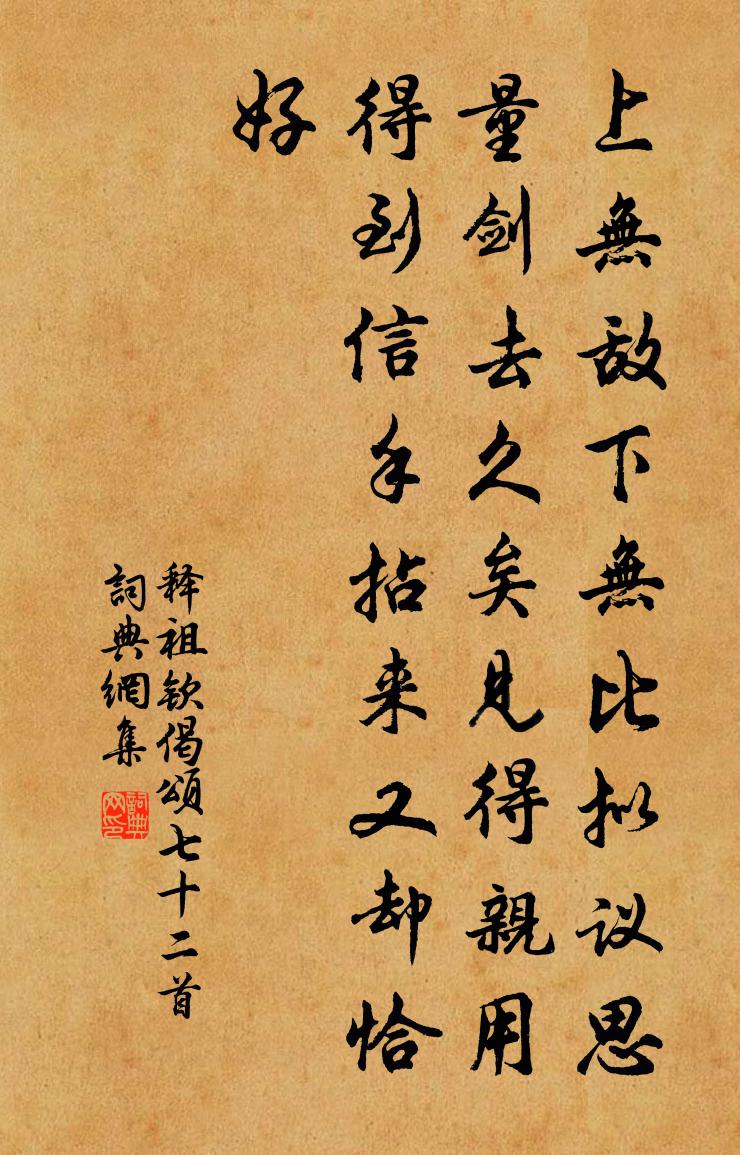 上無敌下無比拟议思
量剑去久矣見得親用
得到信手拈来又却恰
好
释祖钦偈頌七十二首
詞典網集
詞典网印